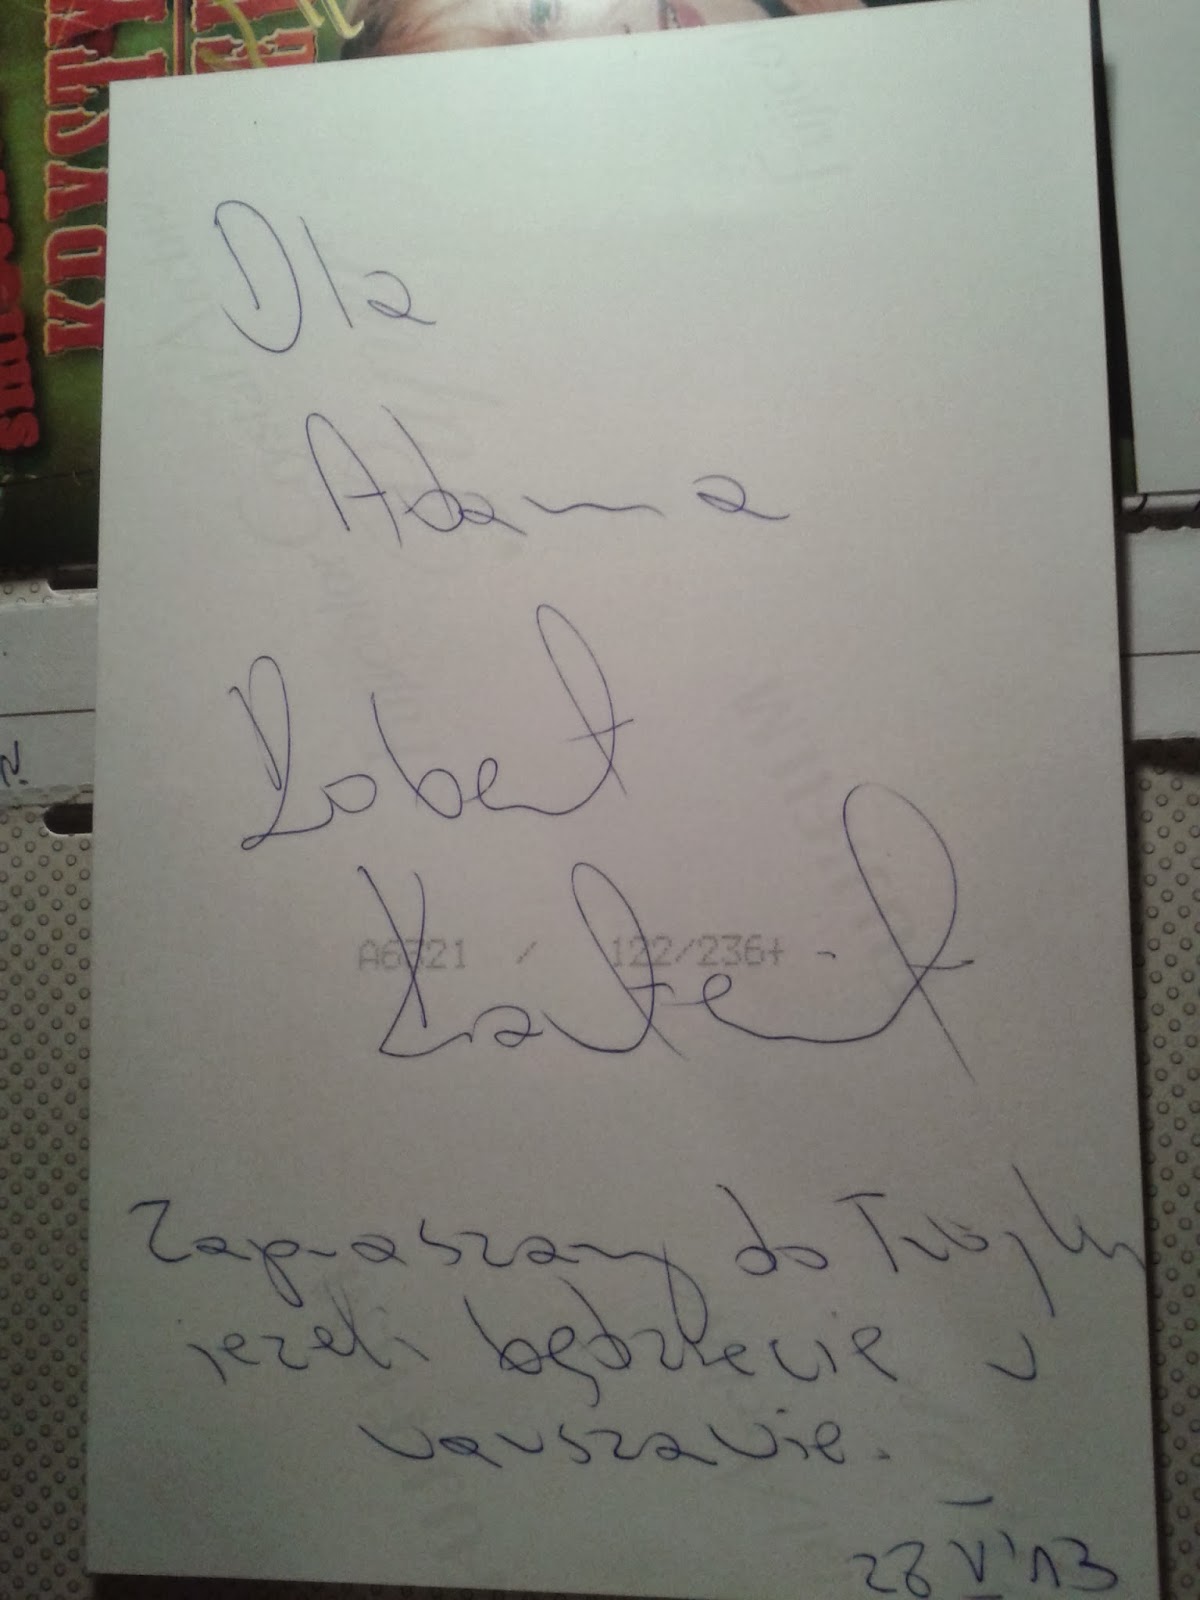 KDYSTY
Dla
Adama
Robert
Kantereit
A6321 / 122/236+ -
Zapraszamy do Trójki
jeżeli będziecie w
warszawie.
28 V '13